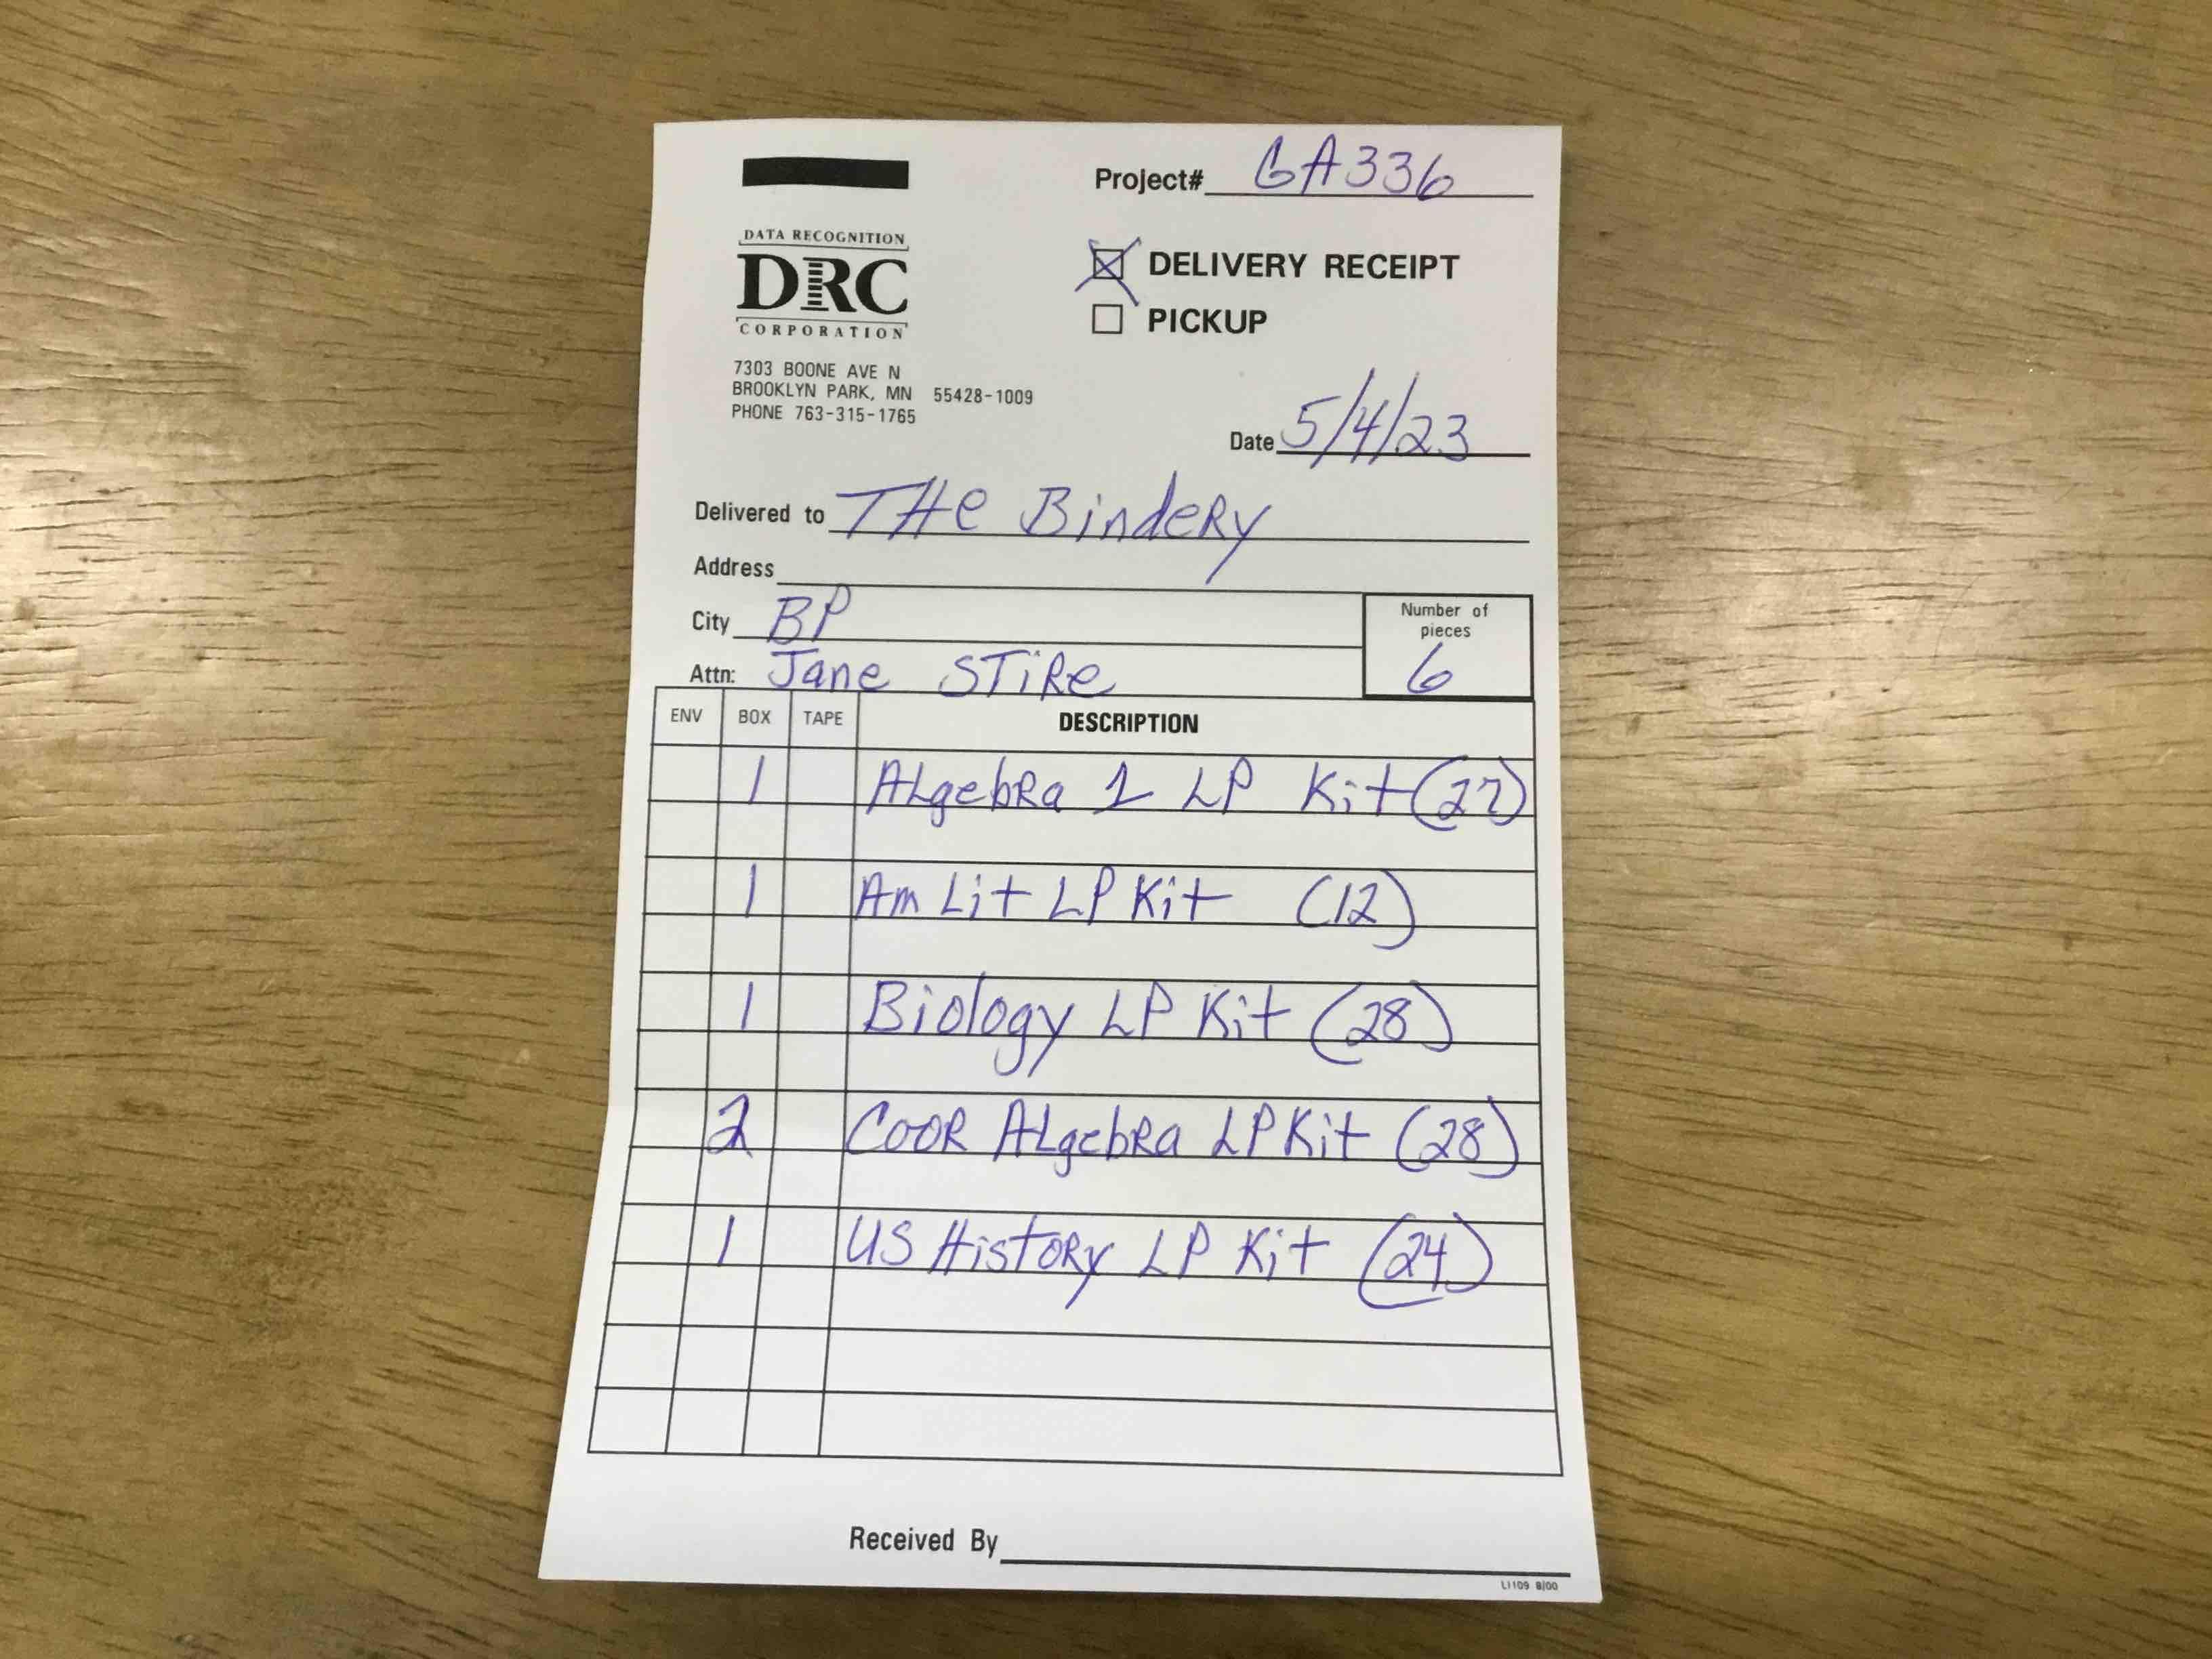 Project# GA336
DATA RECOGNITION
DRC
CORPORATION
☒ DELIVERY RECEIPT
☐ PICKUP
7303 BOONE AVE N
BROOKLYN PARK, MN 55428-1009
PHONE 763-315-1765
Date 5/4/23
Delivered to THe BindeRy
Address
City BP
Attn: Jane STiRe
Number of
pieces
6
ENV BOX TAPE DESCRIPTION
1 ALgebRa 1 LP Kit (27)
1 Am Lit LP Kit (12)
1 Biology LP Kit (28)
2 COOR ALgebRa LP Kit (28)
1 US HistoRy LP Kit (24)
Received By
LI109 8/00